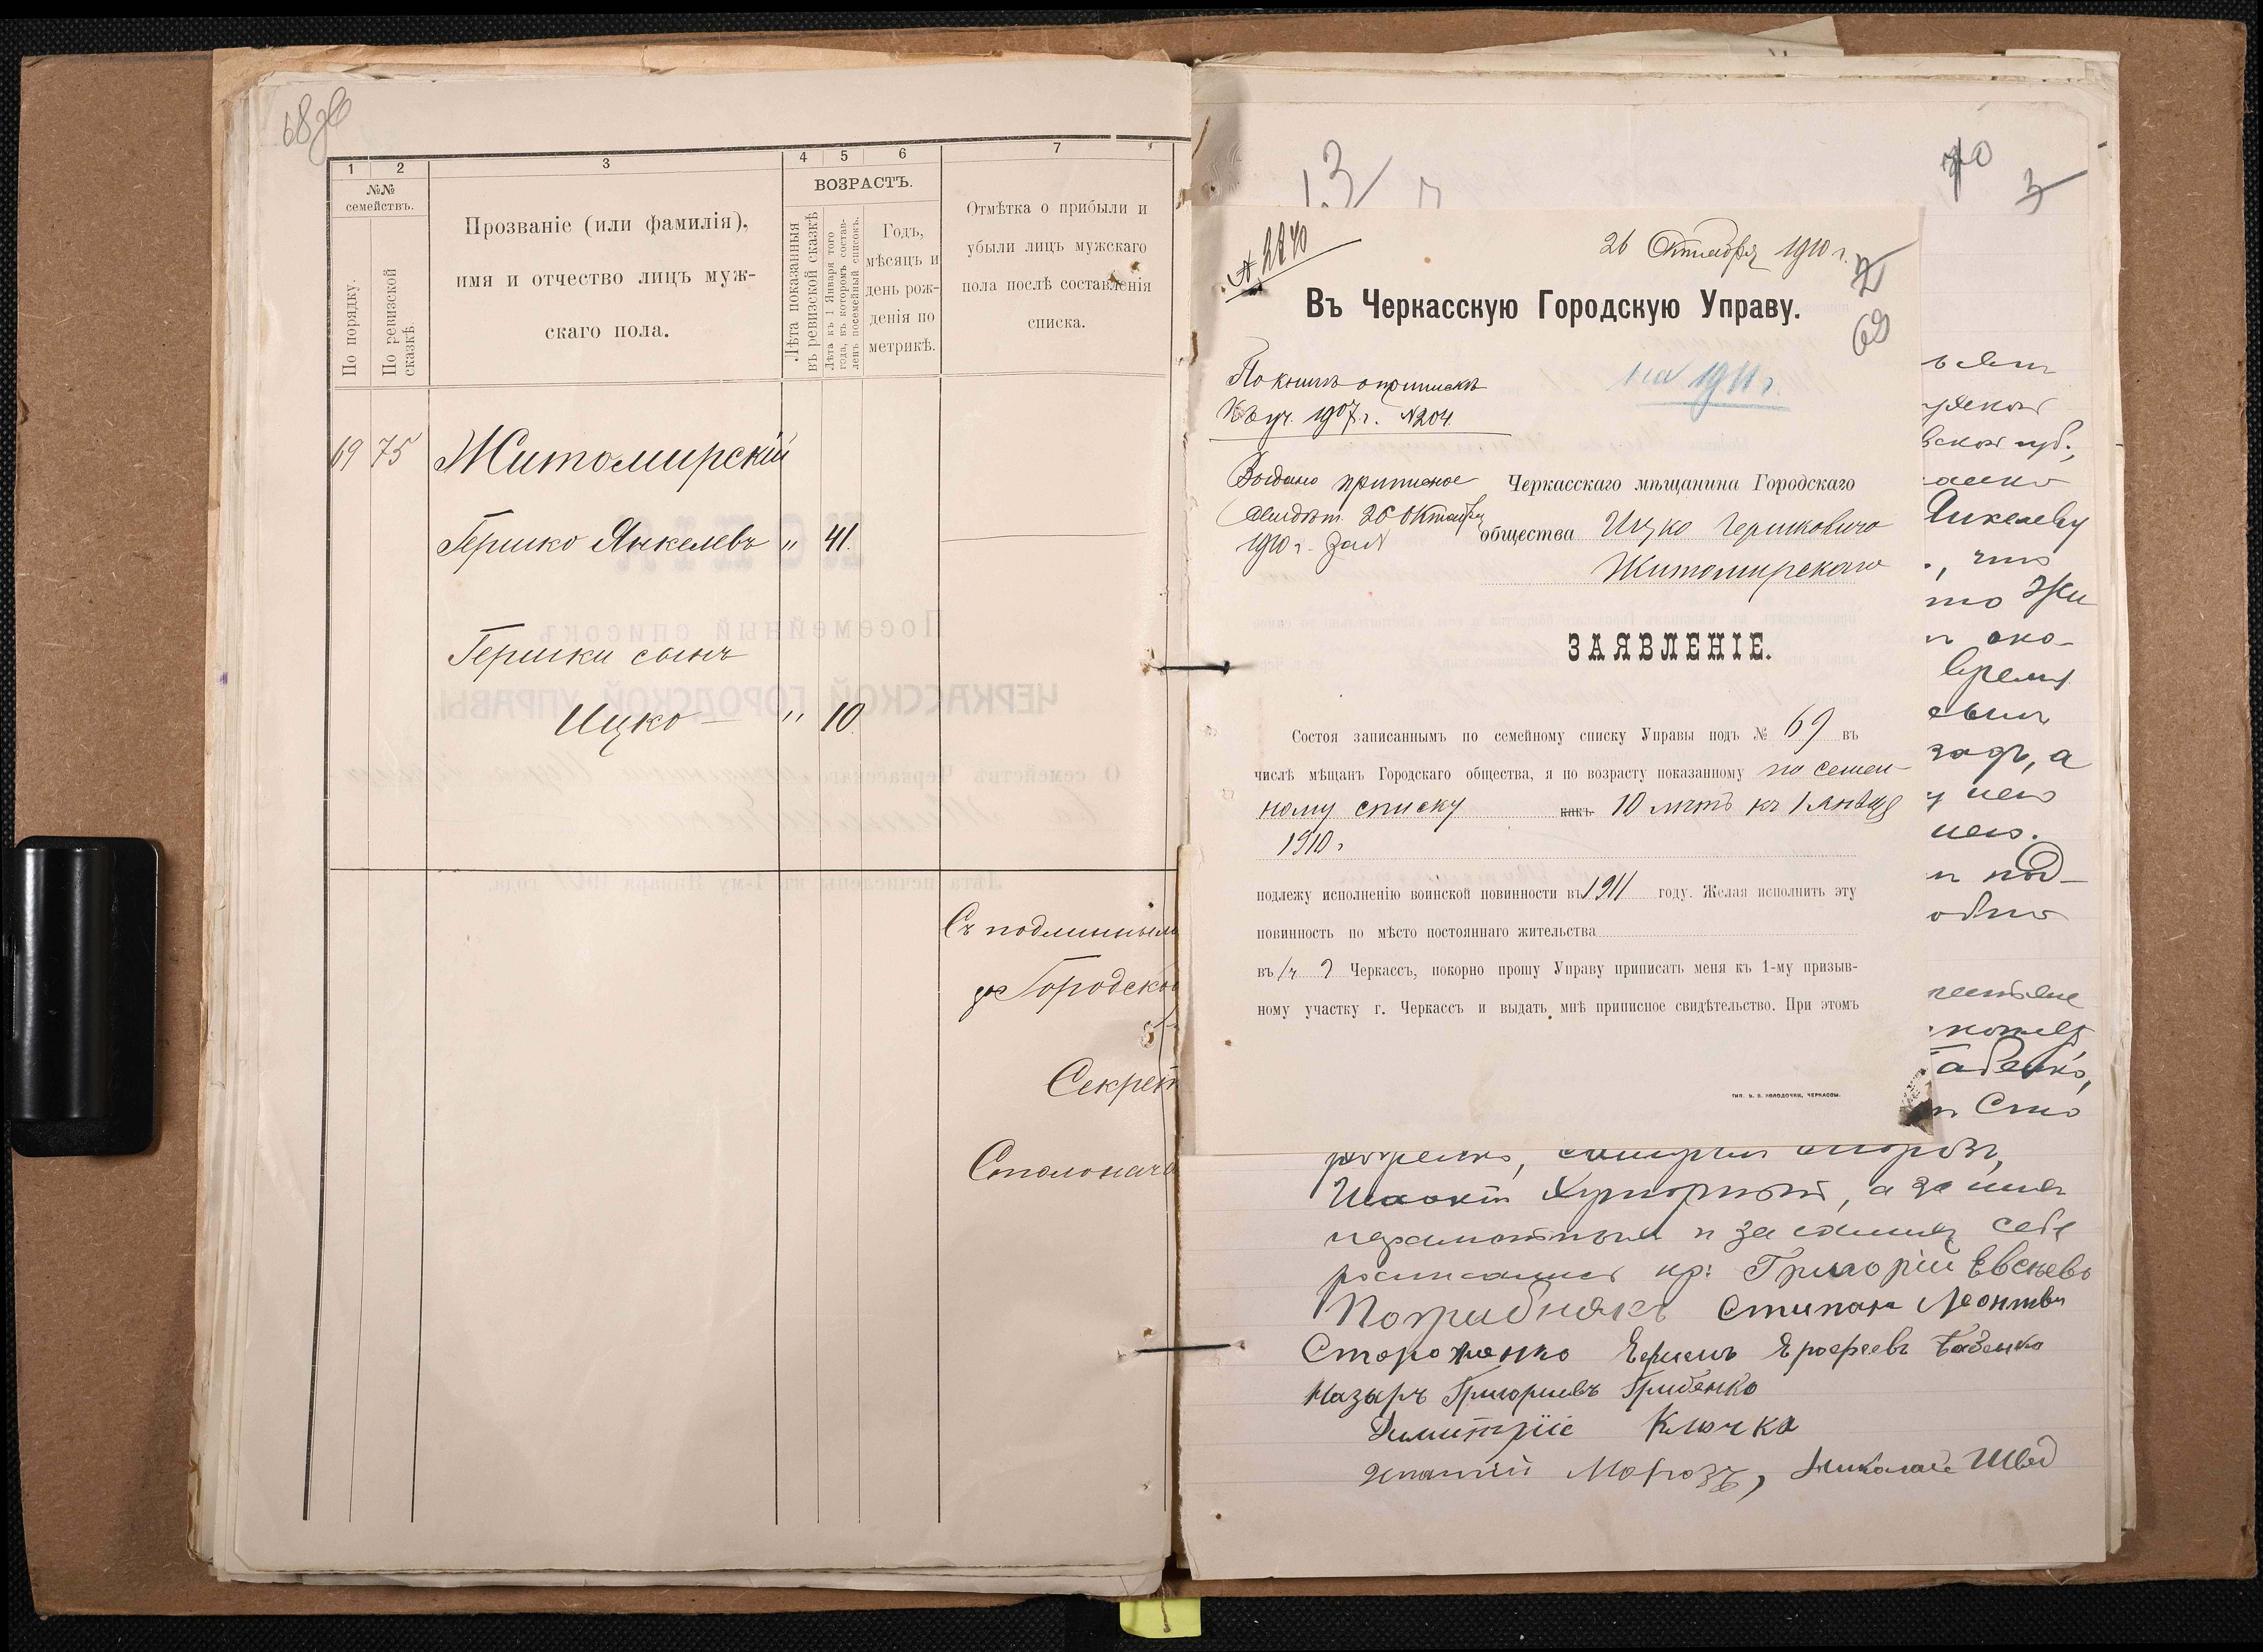 68об
1 2 3 4 5 6 7
№№ семействъ.
По порядку.
По ревизской сказкѣ.
Прозваніе (или фамилія),
имя и отчество лицъ муж-
скаго пола.
ВОЗРАСТЪ.
Лѣта показанныя въ ревизской сказкѣ
Лѣта къ 1 Января того года, въ которомъ состав-
ленъ посемейный списокъ.
Годъ,
мѣсяцъ и
день рож-
денія по
метрикѣ.
Отмѣтка о прибыли и
убыли лицъ мужскаго
пола послѣ составленія
списка.
69 75 Житомирскій
Гершко Янкелевъ „ 41.
Гершки сынъ
Ицко — „ 10
Съ подлиннымъ
Городско
Секрет
Столонача
13
70
3
№ 2240
26 Октября 1910 г.
69
Въ Черкасскую Городскую Управу.
на 1911 г.
По книгѣ о припискѣ
къ уч. 1907 г. №204.
Выдано приписное
свидѣт. 26 Октября
1910 г. за №
Черкасскаго мѣщанина Городскаго
общества Ицко Гершковича
Житомирскаго
ЗАЯВЛЕНІЕ.
Состоя записаннымъ по семейному списку Управы подъ № 69 въ
числѣ мѣщанъ Городскаго общества, я по возрасту показанному по семей-
ному списку какъ 10 лѣтъ къ 1 Января
1910 г
подлежу исполненію воинской повинности въ 1911 году. Желая исполнить эту
повинность по мѣсто постояннаго жительства
въ г Черкассъ, покорно прошу Управу приписать меня къ 1-му призыв-
ному участку г. Черкассъ и выдать мнѣ приписное свидѣтельство. При этомъ
Янкелеву
, что
то Жи
око-
время
сынъ
задъ, а
него.
под-
абенко,
Сто
роженко,
Хуторный, а за нихъ
неграмотныхъ и за самихъ себя
росписались кр: Григорій Евсѣевъ
Погрибнякъ Стипанъ Леонтьи
Стороженко Ерофеевъ Бабенко
Назаръ Григориевъ Грибенко
Димитріе Ключка
Игнатій Морозъ, Николай Швед